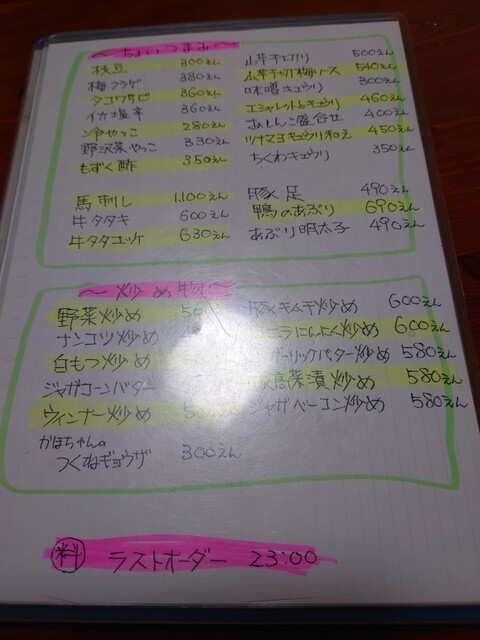 ～ちょいつまみ～
枝豆 300えん
梅クラゲ 380えん
タコワサビ 360えん
イカ塩辛 360えん
冷やっこ 280えん
野沢菜やっこ 330えん
もずく酢 350えん
馬刺し 1,100えん
牛タタキ 600えん
牛タタユッケ 630えん
山芋千切り 500えん
山芋千切り梅 540えん
味噌キュウリ 300えん
エシャレットとキュウリ 460えん
おしんこ盛合せ 400えん
ツナマヨキュウリ和え 450えん
ちくわキュウリ 350えん
豚足 490えん
鴨のあぶり 690えん
あぶり明太子 490えん
～炒め物～
野菜炒め
ナンコツ炒め
白もつ炒め
ジャガコーンバター
ウィンナー炒め
かほちゃんの
つくねギョウザ 300えん
豚キムチ炒め 600えん
ニラにんにく炒め 600えん
ガーリックバター炒め 580えん
高菜漬炒め 580えん
ジャガベーコン炒め 580えん
料 ラストオーダー 23:00